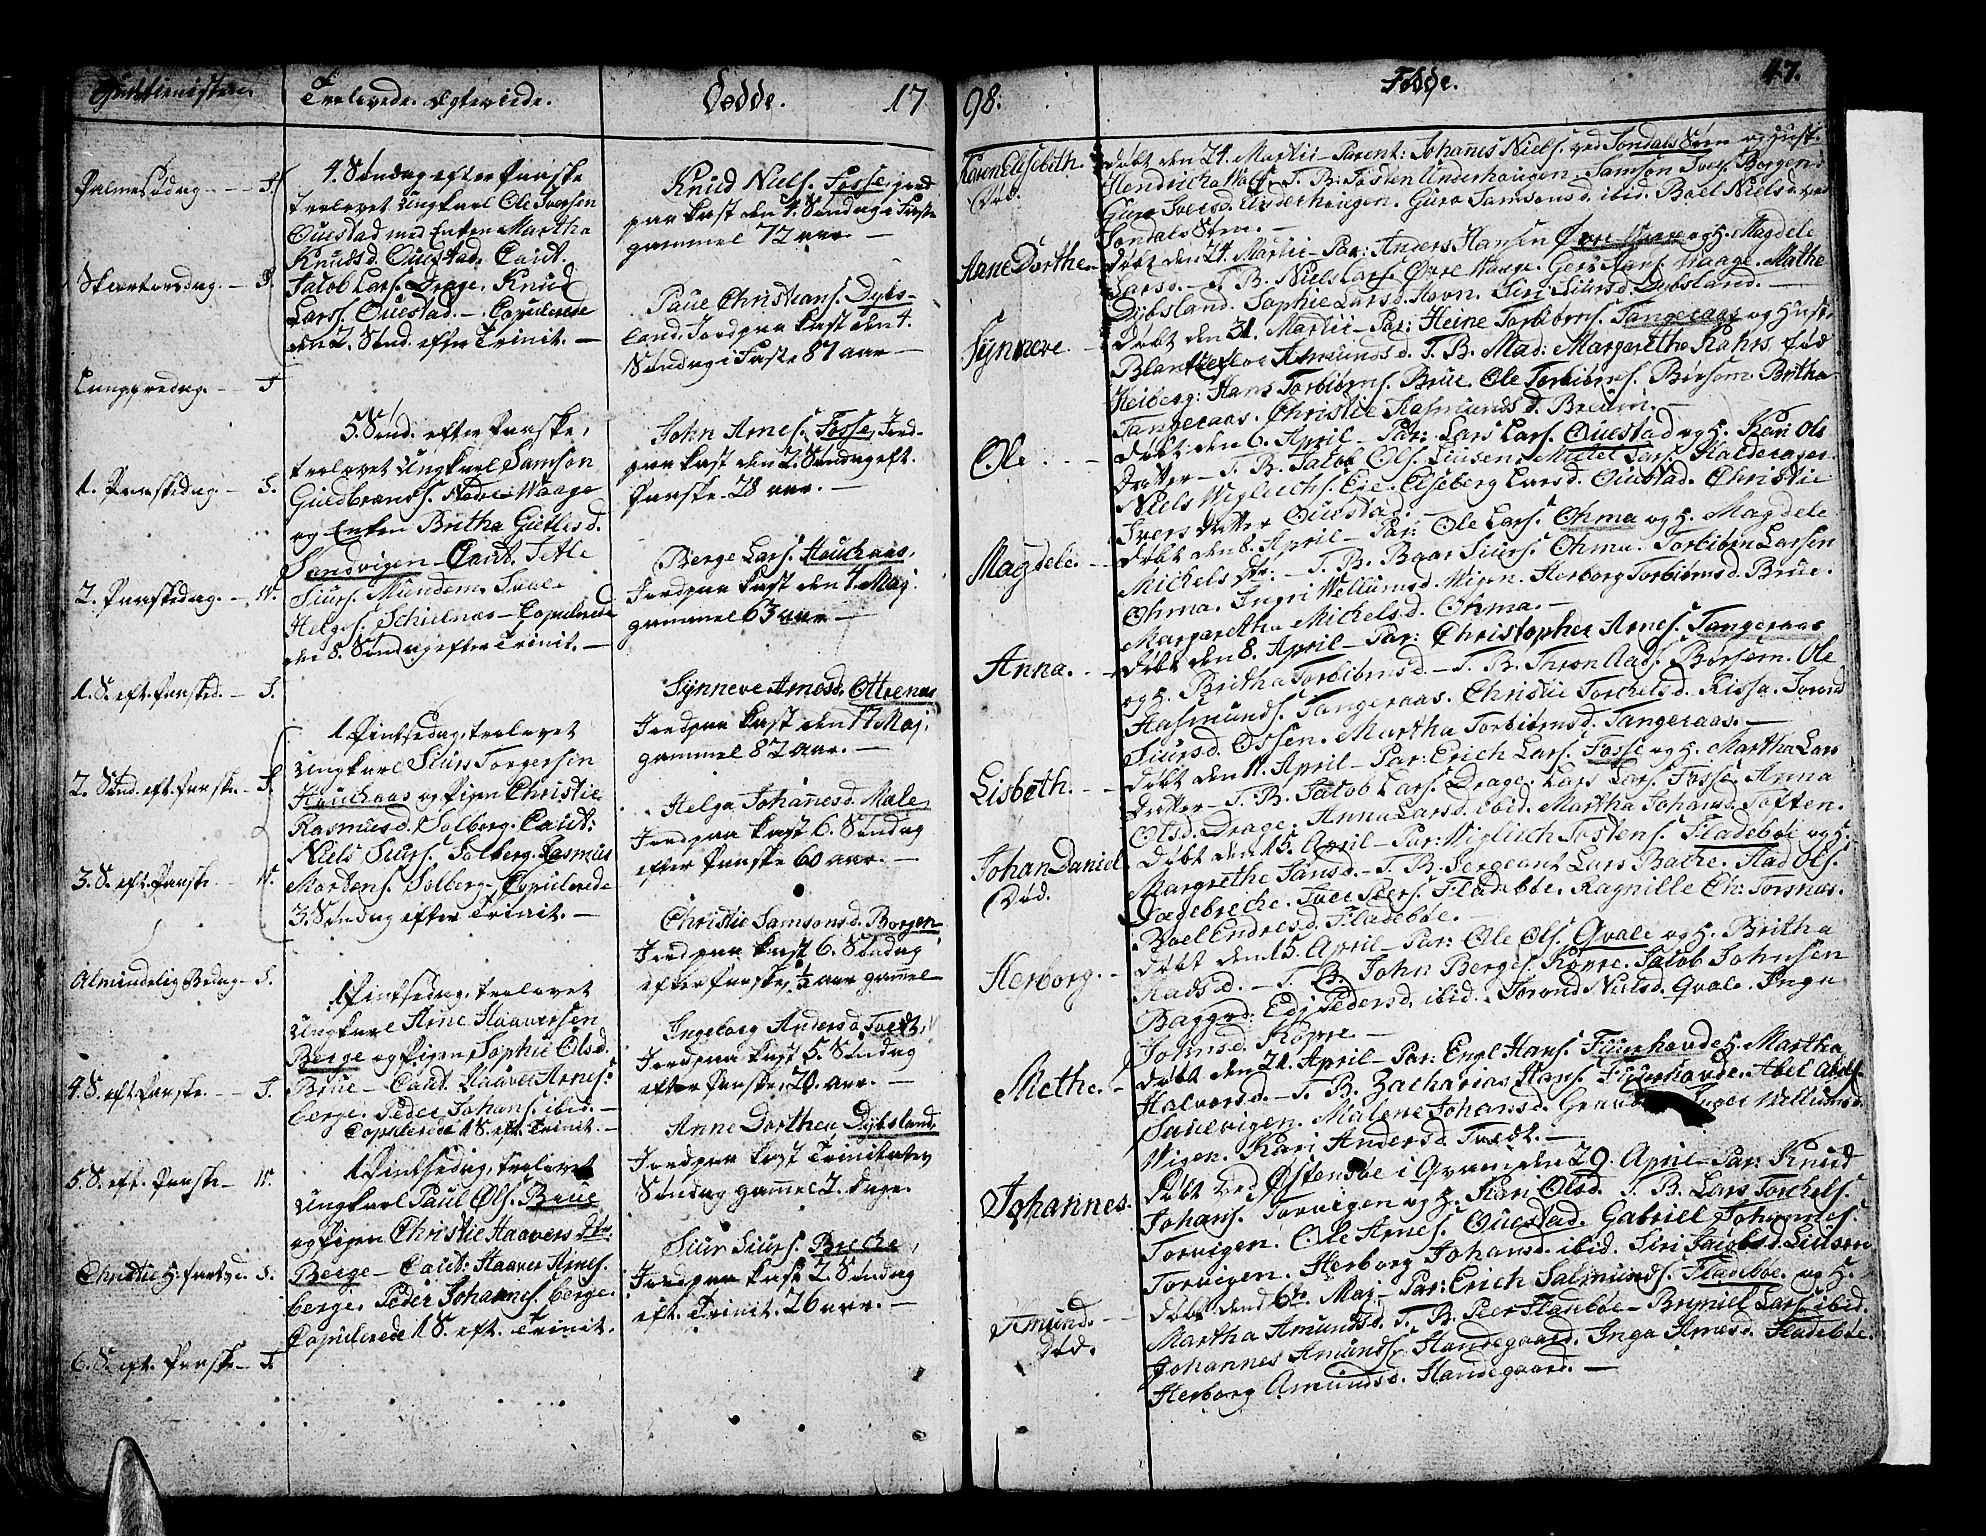 Trolovede. Ægteviede.
Dødde.
17
98.
Fødde.
47.
Palmesødag. - - S.
Skiærtorsdag. - S.
Langfredag. - - S
1. Paaskedag. - S.
2. Paaskedag. - W.
1. S. eft. Paasked. - S.
2. Sønd. eft. Paaske. - S.
3. S. eft. Paaske. - W.
Almindelig Bedag - S.
4. S. eft Paaske. - - S.
5. S. eft. Paaske - W.
Christi H: fartsd. S.
6. S. eft. Paaske - S.
4. Søndag efter Paaske
trolovet Ungkarl Ole Iversen
Ouestad med Enken Martha
Knudsd. Ouestad. Caut.
Jacob Lars. Drage. Knud
Lars. Ouestad. - Copulerede
den 2. Sønd. efter Trinit. -
5. Sønd. efter Paaske,
trolovet Ungkarl Samson
Guldbrands. Nedre Waage
og Enken Britha Gietlesd.
Sandvigen - Caut. Jetle
Siurs. Mundem.
Helges. Schielnæs - Copulerede
den 8. Søndag efter Trinit. -
1 Pintsedag, trolovet
Ungkarl Siurs Torgersen
Hauchaas og Pigen Christie
Rasmusd. Solberg. Caut:
Niels Siurs. Solberg. Rasmus
Mortens. Solberg - Copulerede
3. Søndag efter Trinit. -
1 Pintsedag, trolovet
Ungkarl Arne Haaversen
Berge og Pigen Sophie Olsd.
Brue - Caut. Haaver Arnes:
berge. Peder Johans. ibid. -
Copulerede 1 S. eft. Trinit. -
1 Pintsedag, trolovet
Ungkarl Paul Ols. Brue
og Pigen Christie Haavers Dtr:
Berge - Caut: Haaver Arnes.
berge. Peder Johannes. berge.
Copulerede 1 S. eft. Trinit.
Knud Niels. Fosse, jord
paa kast den 4. Søndag i Faste
gammel 72 aar. -
Paue Christians. Dybs-
land. Jordpaa kast den 4.
Søndag i Faste 87 aar -
John Arnes. Fosse, Jord-
paa kast den 2. Søndag eft.
Paaske. 28 aar. -
Berge Lars. Hauchaas,
Jordpaa kast den 4. Maj
gammel 63 aar -
Synneve Arnesd. Ottrenæs
Jordpaa kast den 17 Maj.
gammel 82 aar. -
Helga Johanesd. Male,
Jordpaa kast 6. Søndag
efter Paaske 60 aar. -
Christie Samsonsd. Borgen
Jordpaa kast 6. Søndag
efter Paaske, ½ aar gamel -
Ingeborg Andersd. Tvedt,
Jordpaa kast 5. Søndag
efter Paaske, 20. aar. -
Anne Dorthea Dybsland.
Jordpaa kast Trinitatis
Søndag gamel 2. Dage.
Siur Siurs. Breche,
Jordpaa kast 2. Søndag
eft. Trinit. 26 aar. -
Karen Elisebeth.
Død.
Døbt den 24. Martii - Parent: Johanes Niels. ved Sondals Strm og Hust.
Hendricha T. B. Tosten Underhougen. Samson Boggen.
Guro Iversd. Underhougen. Guro Samsonsd. ibid. Boel Nielsd. ved
Sondals Strm. -
Anne Dorthe. -
Døbt den 24. Martii - Par: Anders Hansen Øvre Waage og H. Magdele
Larsd. - T. B. Niels Lars. Øvre Waage. Waage. Mathe
Dybsland. Sophie Larsd. Siri Siursd. Dybsland. -
Synneve -
Døbt den 31. Martii - Par: Heine Torbiørns. Tangeraas og Hust.
Amundsd. T. B. Mad: Margrethe Rahrs fød
Heiberg: Hans Torbiørns. Brue. Ole Torbiørns. Børsem. Britha
Tangeraas. Christie Rasmundsd. Breum. -
Ole. - -
Døbt den 6. April - Par: Lars Lars. Ouestad og H. Kari Ols
Datter - T. B. Jacob Ols. Linsen. Michel Lars. Haldorager.
Niels Wiglichs. Eje. Elseberg Larsd. Ouestad. Christie
Ivers datter Ouestad.
Magdele. -
Døbt den 8. April - Par: Ole Lars. Ohma og H. Magdele
Michels Dtr. - T. B. Baar Siurs. Ohma. Torbiørn Larsen
Ohma. Ingri Wellumsd. Winn. Herborg Torbiørnsd. Brue.
Margaretha Michelsd. Ohma. -
Anna. - -
Døbt den 8. April - Par: Christopher Arnes. Tangeraas
og H. Britha Torbiørnsd. - T. B. Thron Aads. Børsem. Ole
Rasmunds. Tangeraas. Christie Torchelsd. Rissa. Torond
Siursd. Ossen. Martha Torbiørnsd. Tangeraas. -
Lisbeth. - -
Døbt den 11. April - Par: Erich Lars. Fosse og H. Martha Lars
Datter - T. B. Jacob Lars. Drage. Lars Lars. Fosse. Anna
Olsd. Drage. Anna Larsd. ibid. Martha Johansd. Toften.
Johan Daniel
Død.
Døbt den 15. April - Par: Wiglich Tostens. Fladebøe og H.
Margrethe Jansd. - T. B. Sergeant Lars Bache. Aad Ols.
Dægebreche. Iver Peers. Fladebøe. Ragnille Ch: Torsnæs.
Boel Endresd. Fladebøe. -
Herborg. -
Døbt den 15. April - Par: Ole Ols. Qvale og H. Britha
Aadsd. - T. B. John Berges. Røpre. Jacob Johnsen
Baggrd: Edj Pedersd. ibid. Torond Nielsd. Qvale. Inga
Johnsd. Røpre. -
Methe. -
Døbt den 21. April - Par: Engl Hans. Fuurhovde H. Martha
Halvorsd. - T. B. Zacharias Hans. Fuurhovde. Abel
Sauevigen. Malene Johansd. Inger Willumsd.
Wigen. Kari Andersd. Tvedt. -
Johannes.
Døbt ved Østensøe i Qvam den 29. April - Par: Knud
Johans. Torvigen og H. Kari Olsd. T. B. Lars Torchels.
Torvigen. Ole Arnes. Ouestad. Gabriel Johannes.
Torvigen. Herborg Johansd. ibid. Siri Jacobsd. Linsen
Amund. -
Død.
Døbt den 6te Maj - Par: Erich Salmunds. Fladebøe. og H.
Martha Amundsd. T. B. Peer Fladebøe - Brynild Lars. ibid.
Johannes Amunds. Handegaard. Inga Arnesd. Fladebøe.
Herborg Amundsd. Handegaard. -